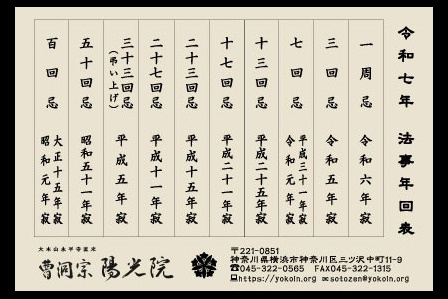 令和七年 法事年回表
一周忌 令和六年寂
三回忌 令和五年寂
七回忌 平成三十一年寂
令和元年寂
十三回忌 平成二十五年寂
十七回忌 平成二十一年寂
二十三回忌 平成十五年寂
二十七回忌 平成十一年寂
三十三回忌
(弔い上げ) 平成五年寂
五十回忌 昭和五十一年寂
百回忌 大正十五年寂
昭和元年寂
大本山永平寺直末
曹洞宗 陽光院
〒221-0851
神奈川県横浜市神奈川区三ツ沢中町11-9
☎045-322-0565 FAX045-322-1315
https://yokoin.org ✉sotozen@yokoin.org